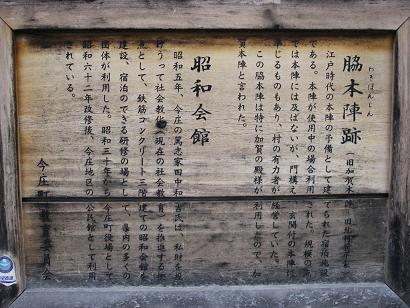 わきほんじん
脇本陣跡
江戸時代の本陣の予備として建てられた宿泊施設
である。本陣が使用中の場合利用された。規模の点
では本陣には及ばないが、門構え、玄関付の本陣に
準じるものもあり、村の有力者が経営していた。
この脇本陣は特に加賀の殿様が利用したので、加
賀本陣と言われた。
昭和会館
昭和五年、今庄の篤志家田中和吉氏は、私財を投
げうって社会教化(現在の社会教育)を推進する拠
点として、鉄筋コンクリート三階建ての昭和会館を
建設、宿泊のできる研修の場として、県内の多くの
団体が利用した。昭和三十年から、今庄町役場として
昭和六十二年改修後、今庄地区の公民館として利用
されている。
今庄町教育委員会